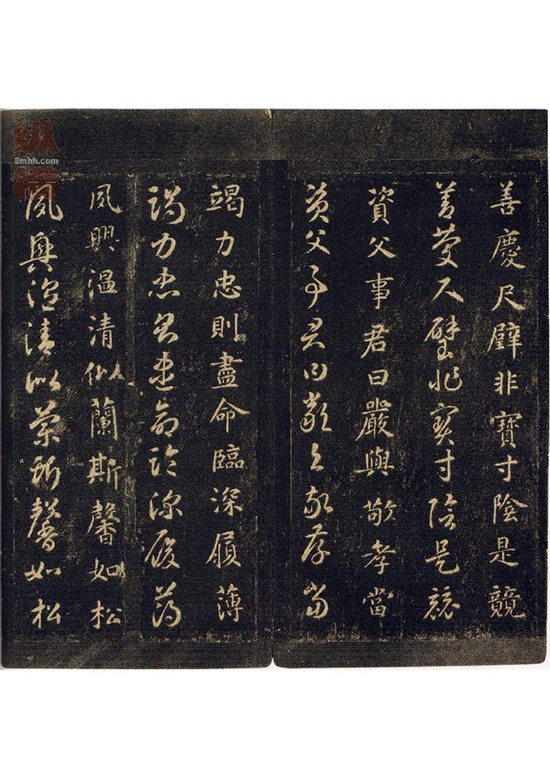 善慶尺璧非寶寸陰是競
善慶尺璧非寶寸陰是競
資父事君曰嚴與敬孝當
資父事君曰嚴與敬孝當
竭力忠則盡命臨深履薄
竭力忠則盡命臨深履薄
夙興溫清似蘭斯馨如松
夙興溫清似蘭斯馨如松
8mhh.com